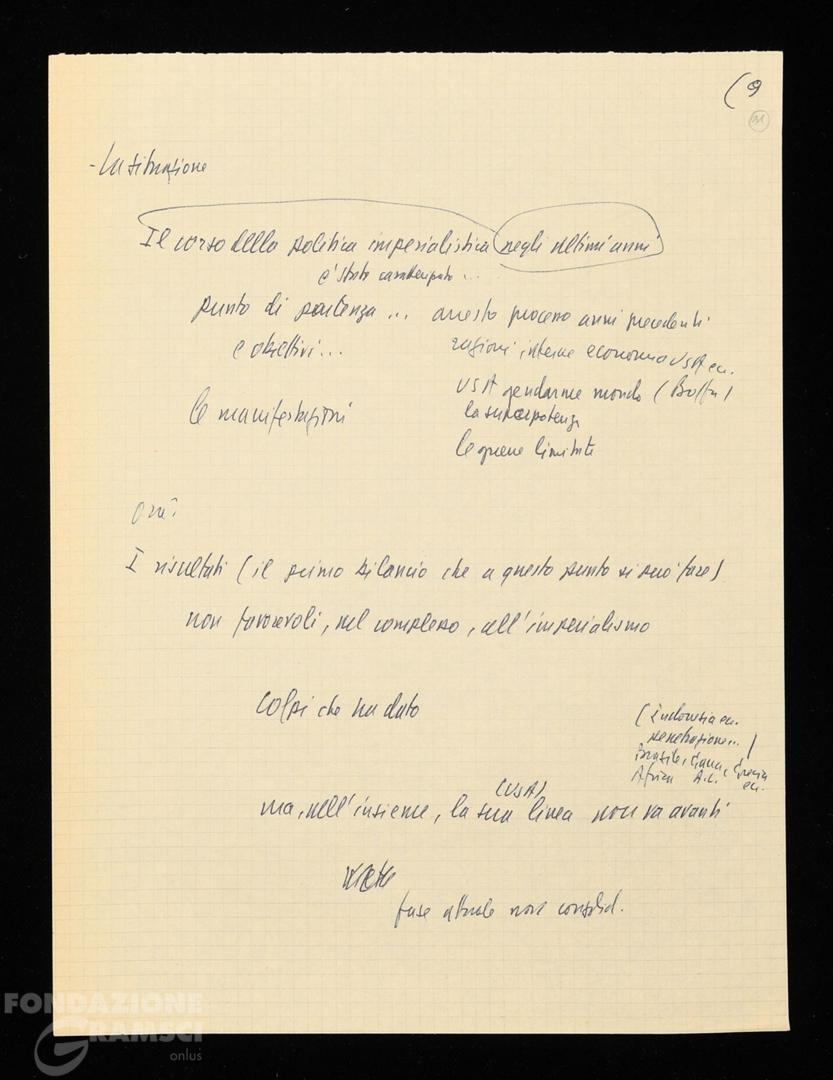 (9
- La situazione
Il corso della politica imperialistica negli ultimi anni
è stato caratterizzato ...
punto di partenza ... questo processo anni precedenti
e obiettivi ... ragioni interne economia USA ecc.
USA gendarme mondo (Boffa)
le manifestazioni la superpotenza
le guerre limitate
Ora:
I risultati (il primo bilancio che a questo punto si può fare)
non favorevoli, nel complesso, all'imperialismo
Colpi che ha dato
(Indonesia ecc.
penetrazione...)
Brasile, Gana, Grecia
Africa A.L. ecc.
(USA)
ma, nell'insieme, la sua linea non va avanti
fase attuale non consolid.
FONDAZIONE
GRAMSCI
onlus